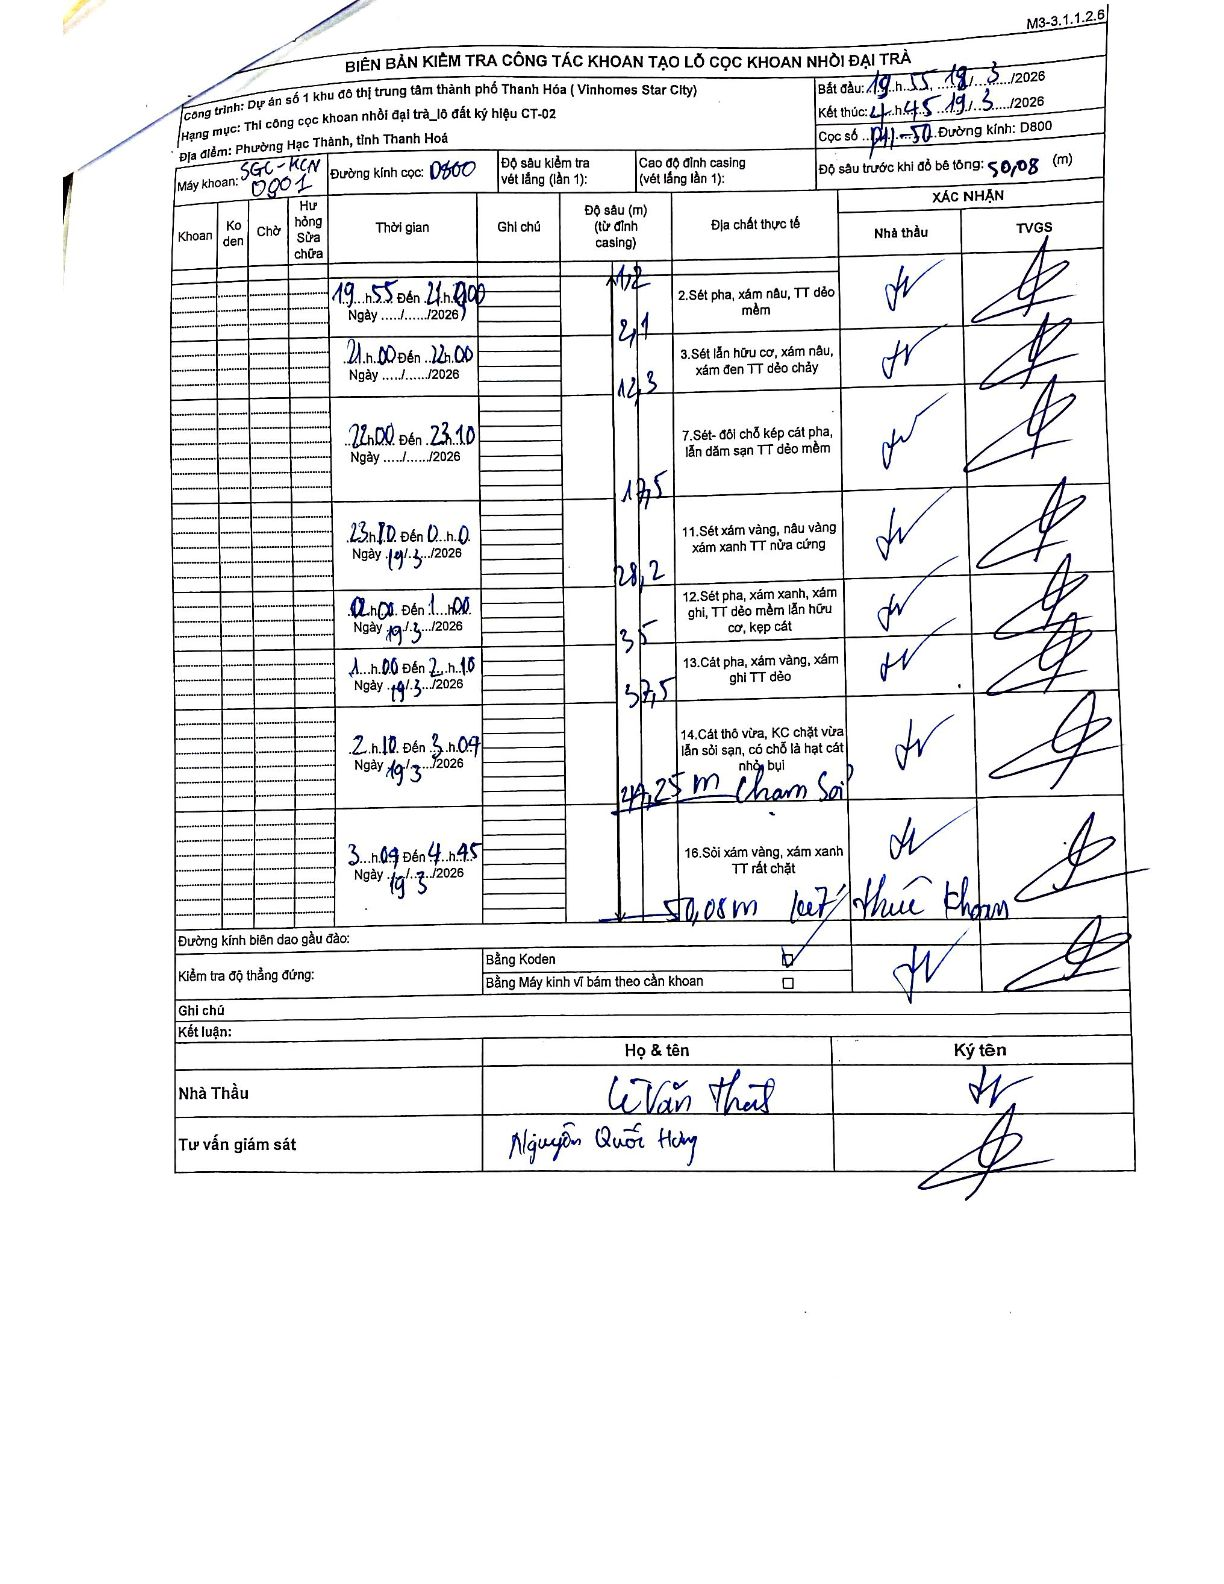 M3-3.1.1.2.6
BIÊN BẢN KIỂM TRA CÔNG TÁC KHOAN TẠO LỖ CỌC KHOAN NHỒI ĐẠI TRÀ
Công trình: Dự án số 1 khu đô thị trung tâm thành phố Thanh Hóa ( Vinhomes Star City)
Hạng mục: Thi công cọc khoan nhồi đại trà_lô đất ký hiệu CT-02
Địa điểm: Phường Hạc Thành, tỉnh Thanh Hoá
Bắt đầu: 19 h 55, 18 / 3 /2026
Kết thúc: 4 h 45 19 / 3 /2026
Cọc số P41-50 Đường kính: D800
Máy khoan: SGC-KCN 0901
Đường kính cọc: D800
Độ sâu kiểm tra vét lắng (lần 1):
Cao độ đỉnh casing (vét lắng lần 1):
Độ sâu trước khi đổ bê tông: 50,08 (m)
Khoan
Ko den
Chờ
Hư hỏng Sửa chữa
Thời gian
Ghi chú
Độ sâu (m) (từ đỉnh casing)
Địa chất thực tế
XÁC NHẬN
Nhà thầu
TVGS
1,2
19 h 55 Đến 21 h 00
Ngày ...../....../2026
2.Sét pha, xám nâu, TT dẻo mềm
2,1
21 h 00 Đến 22h 00
Ngày ...../....../2026
3.Sét lẫn hữu cơ, xám nâu, xám đen TT dẻo chảy
12,3
22h00 Đến 23h10
Ngày ...../....../2026
7.Sét- đôi chỗ kép cát pha, lẫn dăm sạn TT dẻo mềm
17,5
23 h 10 Đến 0 h 0
Ngày 19/ 3 /2026
11.Sét xám vàng, nâu vàng xám xanh TT nửa cứng
28,2
0h00 Đến 1 h00
Ngày 19/ 3 /2026
12.Sét pha, xám xanh, xám ghi, TT dẻo mềm lẫn hữu cơ, kẹp cát
35
1 h 00 Đến 2 h 10
Ngày 19/ 3 /2026
13.Cát pha, xám vàng, xám ghi TT dẻo
37,5
2 h 10 Đến 3 h 09
Ngày 19/3 /2026
14.Cát thô vừa, KC chặt vừa lẫn sỏi sạn, có chỗ là hạt cát nhỏ bụi
,25 m Chạm Sỏi
3 h 09 Đến 4 h 45
Ngày 19/ 3 /2026
16.Sỏi xám vàng, xám xanh TT rất chặt
50,08m kết thúc khoan
Đường kính biên dao gầu đào:
Kiểm tra độ thẳng đứng:
Bằng Koden
Bằng Máy kinh vĩ bám theo cần khoan
Ghi chú
Kết luận:
Họ & tên
Ký tên
Nhà Thầu
Lê Văn Thật
Tư vấn giám sát
Nguyễn Quốc Hưng